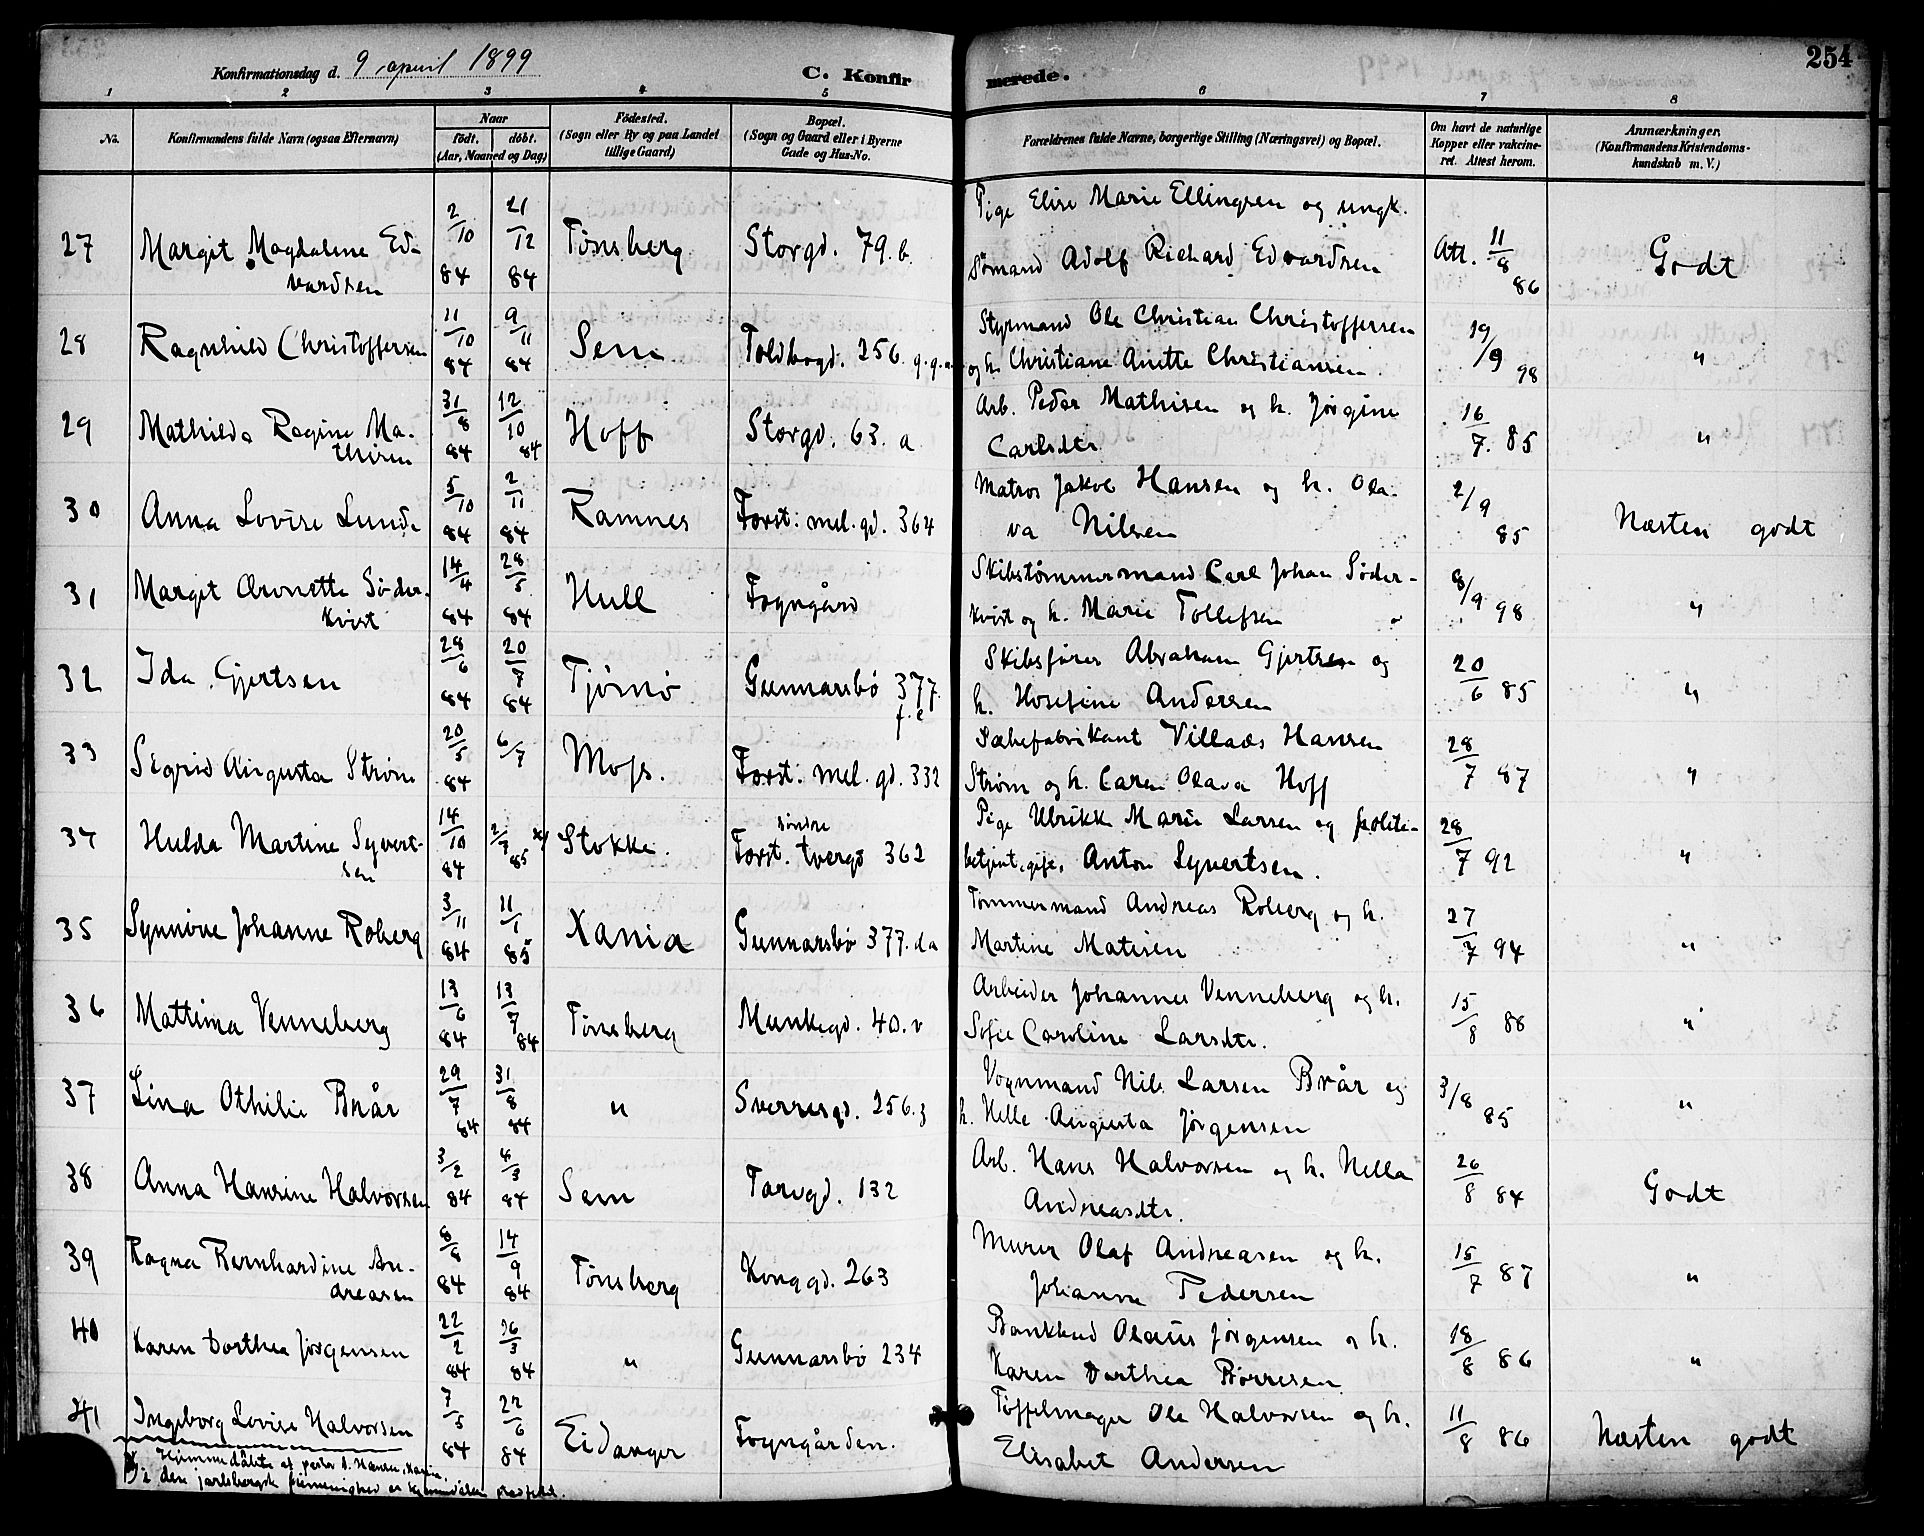 Konfirmationsdag d. 9 april 1899
C. Konfirmerede.
254
1 2 3 4 5 6 7 8
No.
Konfirmandens fulde Navn (ogsaa Efternavn)
Naar
födt. döbt.
(Aar, Maaned og Dag)
Födested.
(Sogn eller By og paa Landet
tillige Gaard)
Bopæl.
(Sogn og Gaard eller i Byerne
Gade og Hus-No.
Forældrenes fulde Navne, borgerlige Stilling (Næringsvei) og Bopæl.
Om havt de naturlige
Kopper eller vakcine-
ret. Attest herom.
Anmærkninger.
(Konfirmandens Kristendoms-
kundskab m. V.)
27 Margit Magdalene Ed-
vardsen
2/10 84 21/12 84 Tønsberg Storgd. 79.b.
Pige Elise Marie Ellingsen og ungk.
Sømand Adolf Richard Edvardsen
Att. 11/8 86 Godt
28 Ragnhild Christoffersen 11/10 84 9/11 84 Sem Toldbogd. 256.
Styrmand Ole Christian Christoffersen
og h. Christiane Anette Christiansen.
19/9 98 "
29 Mathilda Ragine Ma-
thisen
31/8 84 12/10 84 Hoff Storgd. 63. a
Arb. Peder Mathisen og h. Jørgine
Carlsdtr
16/7. 85 "
30 Anna Lovise Lunde 5/10 84 2/11 84 Ramnes Forst: mel. gd. 364
Matros Jakob Hansen og h. Ola-
va Nilsen
2/9 85 Næsten godt
31 Margit Aronette Søder-
kvist
14/4 84 28/5 84 Hull Fogngård
Skibstømmermand Carl Johan Söder-
kvist og h. Marie Tollefsen
8/9 98 "
32 Ida Gjertsen 28/6 84 20/7 84 Tjømö Gunnarsbö 377.
f. e
Skibsfører Abraham Gjertsen og
h. Hosefine Andersen
20/6 85 "
33 Sigrid Augusta Strøm 20/5 84 6/7 Moss. Forst. mel. gd. 332
Sæbefabrikant Villads Hansen
Strøm og h. Caren Olava Hoff
28/7 87 "
34 Hulda Martine Syvert-
sen
14/10 84 2/7 85 Stokke. søndre
Forst. tvergd 362
Pige Ulrikk Marie Larsen og politi-
betjent, gift, Anton Syvertsen.
28/7 92 "
35 Synnöve Johanne Roberg 3/11 84 11/1 85 Xania Gunnarsbö 377. da
Tømmermand Andreas Roberg og h.
Martine Matisen
27/7 94 "
36 Mattima Venneberg 13/6 84 13/7 84 Tønsberg Munkegd. 40. v
Arbeider Johannes Venneberg og h.
Sofie Caroline Larsdtr.
15/8 86 "
37 Lina Othilie Brår 29/7 84 31/8 84 " Sverresgd. 256. z
Vognmand Nils Larsen Brår og
h. Helle Augusta Jörgensen
3/8 85 "
38 Anna Hansine Halvorsen 3/2 84 4/3 84 Sem Torvgd. 132
Arb. Hans Halvorsen og h. Nella
Andreasdtr.
26/8 84 Godt
39 Ragna Bernhardine An-
dreasen
8/8 84 14/9 84 Tønsberg Konggd. 263
Murer Olaf Andreasen og h.
Johanne Pedersen
15/7 87 "
40 Karen Dorthea Jörgensen 22/2 84 26/3 84 " Gunnarsbö 234
Bankbud Olaus Jörgensen o h.
Karen Dorthea Börresen
18/8 86 "
41 Ingeborg Lovise Halvorsen 7/5 84 22/6 84 Eidanger Fogngården.
Töffelmager Ole Halvorsen og h.
Elisabet Andersen
11/8 86 Næsten godt
Hjemmedöbte af pastor S. Hansen, Xania,
den jarlsbergske frimenighed